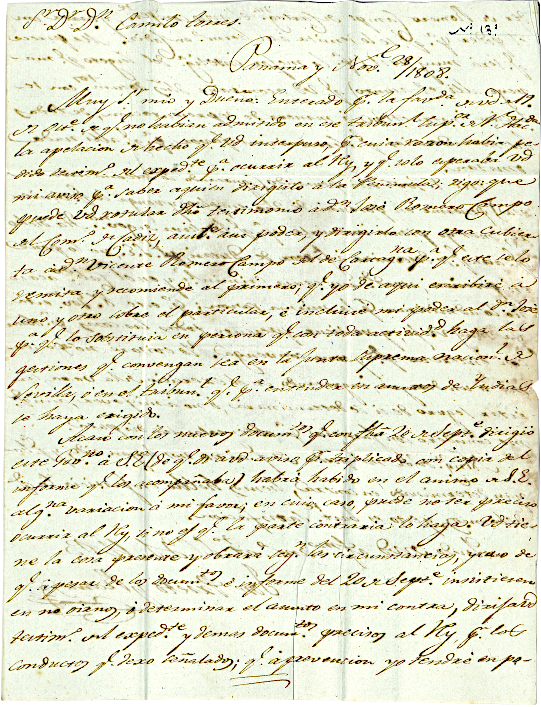 Sr. Dr. Dn. Camilo Torres.
No. 13.
Panama y Nove. 28/1808.
Muy Sr. mio y Dueño: Enterado pr. la favda. de Vd.
de qe. no hubiesen admitido en ese tribunl. Supr.
la apelacion de hecho qe. Vd interpuso, pr. cuia razon habia pe-
dido testim. del expedte. pa. ocurrir al Rey, y qe. solo esperaba Vd
mi aviso pa. saber aquien dirigirlo à la Peninsula; digo: que
puede Vd. rotular dho testimonio à Dn. José Romero Campo
del Como. de Cadiz, con otra cubier-
ta à Dn. Vicente Romero Campo del de Cartagna. pa. qe. este se lo
remita y recomiende al primero; qe. yo de aqui escribiré à
uno y otro sobre el particular, è incluiré mi poder al Dn. José
pa. qe. lo sostituia en persona qe. con toda actividd. haga las
gestiones qe. convengan sea en la Junta Suprema nacionl. de
Sevilla, ó en el tribunl. qe. pa. entender en asuntos de Indias
se haya erigido.
Acaso con los nuevos documtos. qe. con fha. 20 de Septe. dirigió
este Govno. à S.E. (de qe. di à Vd. aviso pr. triplicado con copia del
informe qe. los acompañaba) habrá habido en el animo de S.E.
algna. variacion à mi favor; en cuio caso, puede no ser preciso
ocurrir al Rey, si no es qe. la parte contraria lo haga. Vd tie-
ne la cosa presente y obrará segn. las circunstancias, y caso de
qe. à pesar de los documtos. è informe del 20 de Septe. insistiesen
en no oirnos, ó determinar el asunto en mi contra, dirija Vd
testimo. del expedte. y demas documtos. precisos al Rey pr. los
conductos qe. dexo señalados; qe. à prevencion yo tendré en po-